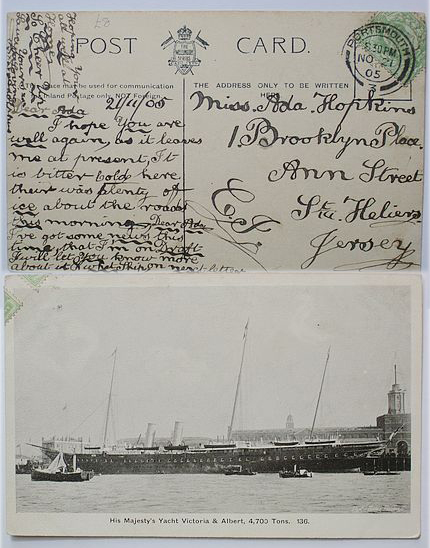 POST CARD.
This space may be used for communication
Inland Postage only, NOT Foreign.
THE ADDRESS ONLY TO BE WRITTEN
HERE
PORTSMOUTH
5.30 PM
NO 21
05
Dear Ada 21/11/05
I hope you are
well again, as it leaves
me at present, It
is bitter cold here
their was plenty of
ice about the roads
this morning, Dear Ada
I've got some news this
time, that I'm on Draft
I will let you know more
about it what ship in next letter
Miss. Ada Hopkins
1 Brooklyn Place.
Ann Street
St. Heliers
Jersey
His Majesty's Yacht Victoria & Albert, 4,700 Tons. 136.